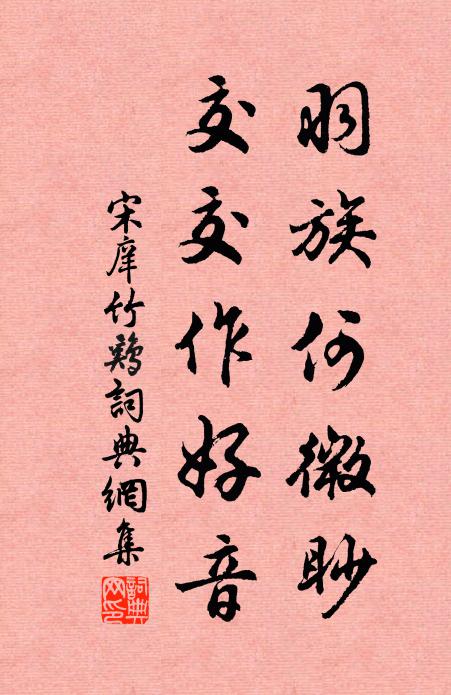 羽族何微眇
交交作好音
宋庠竹鷄詞典網集
詞典網印